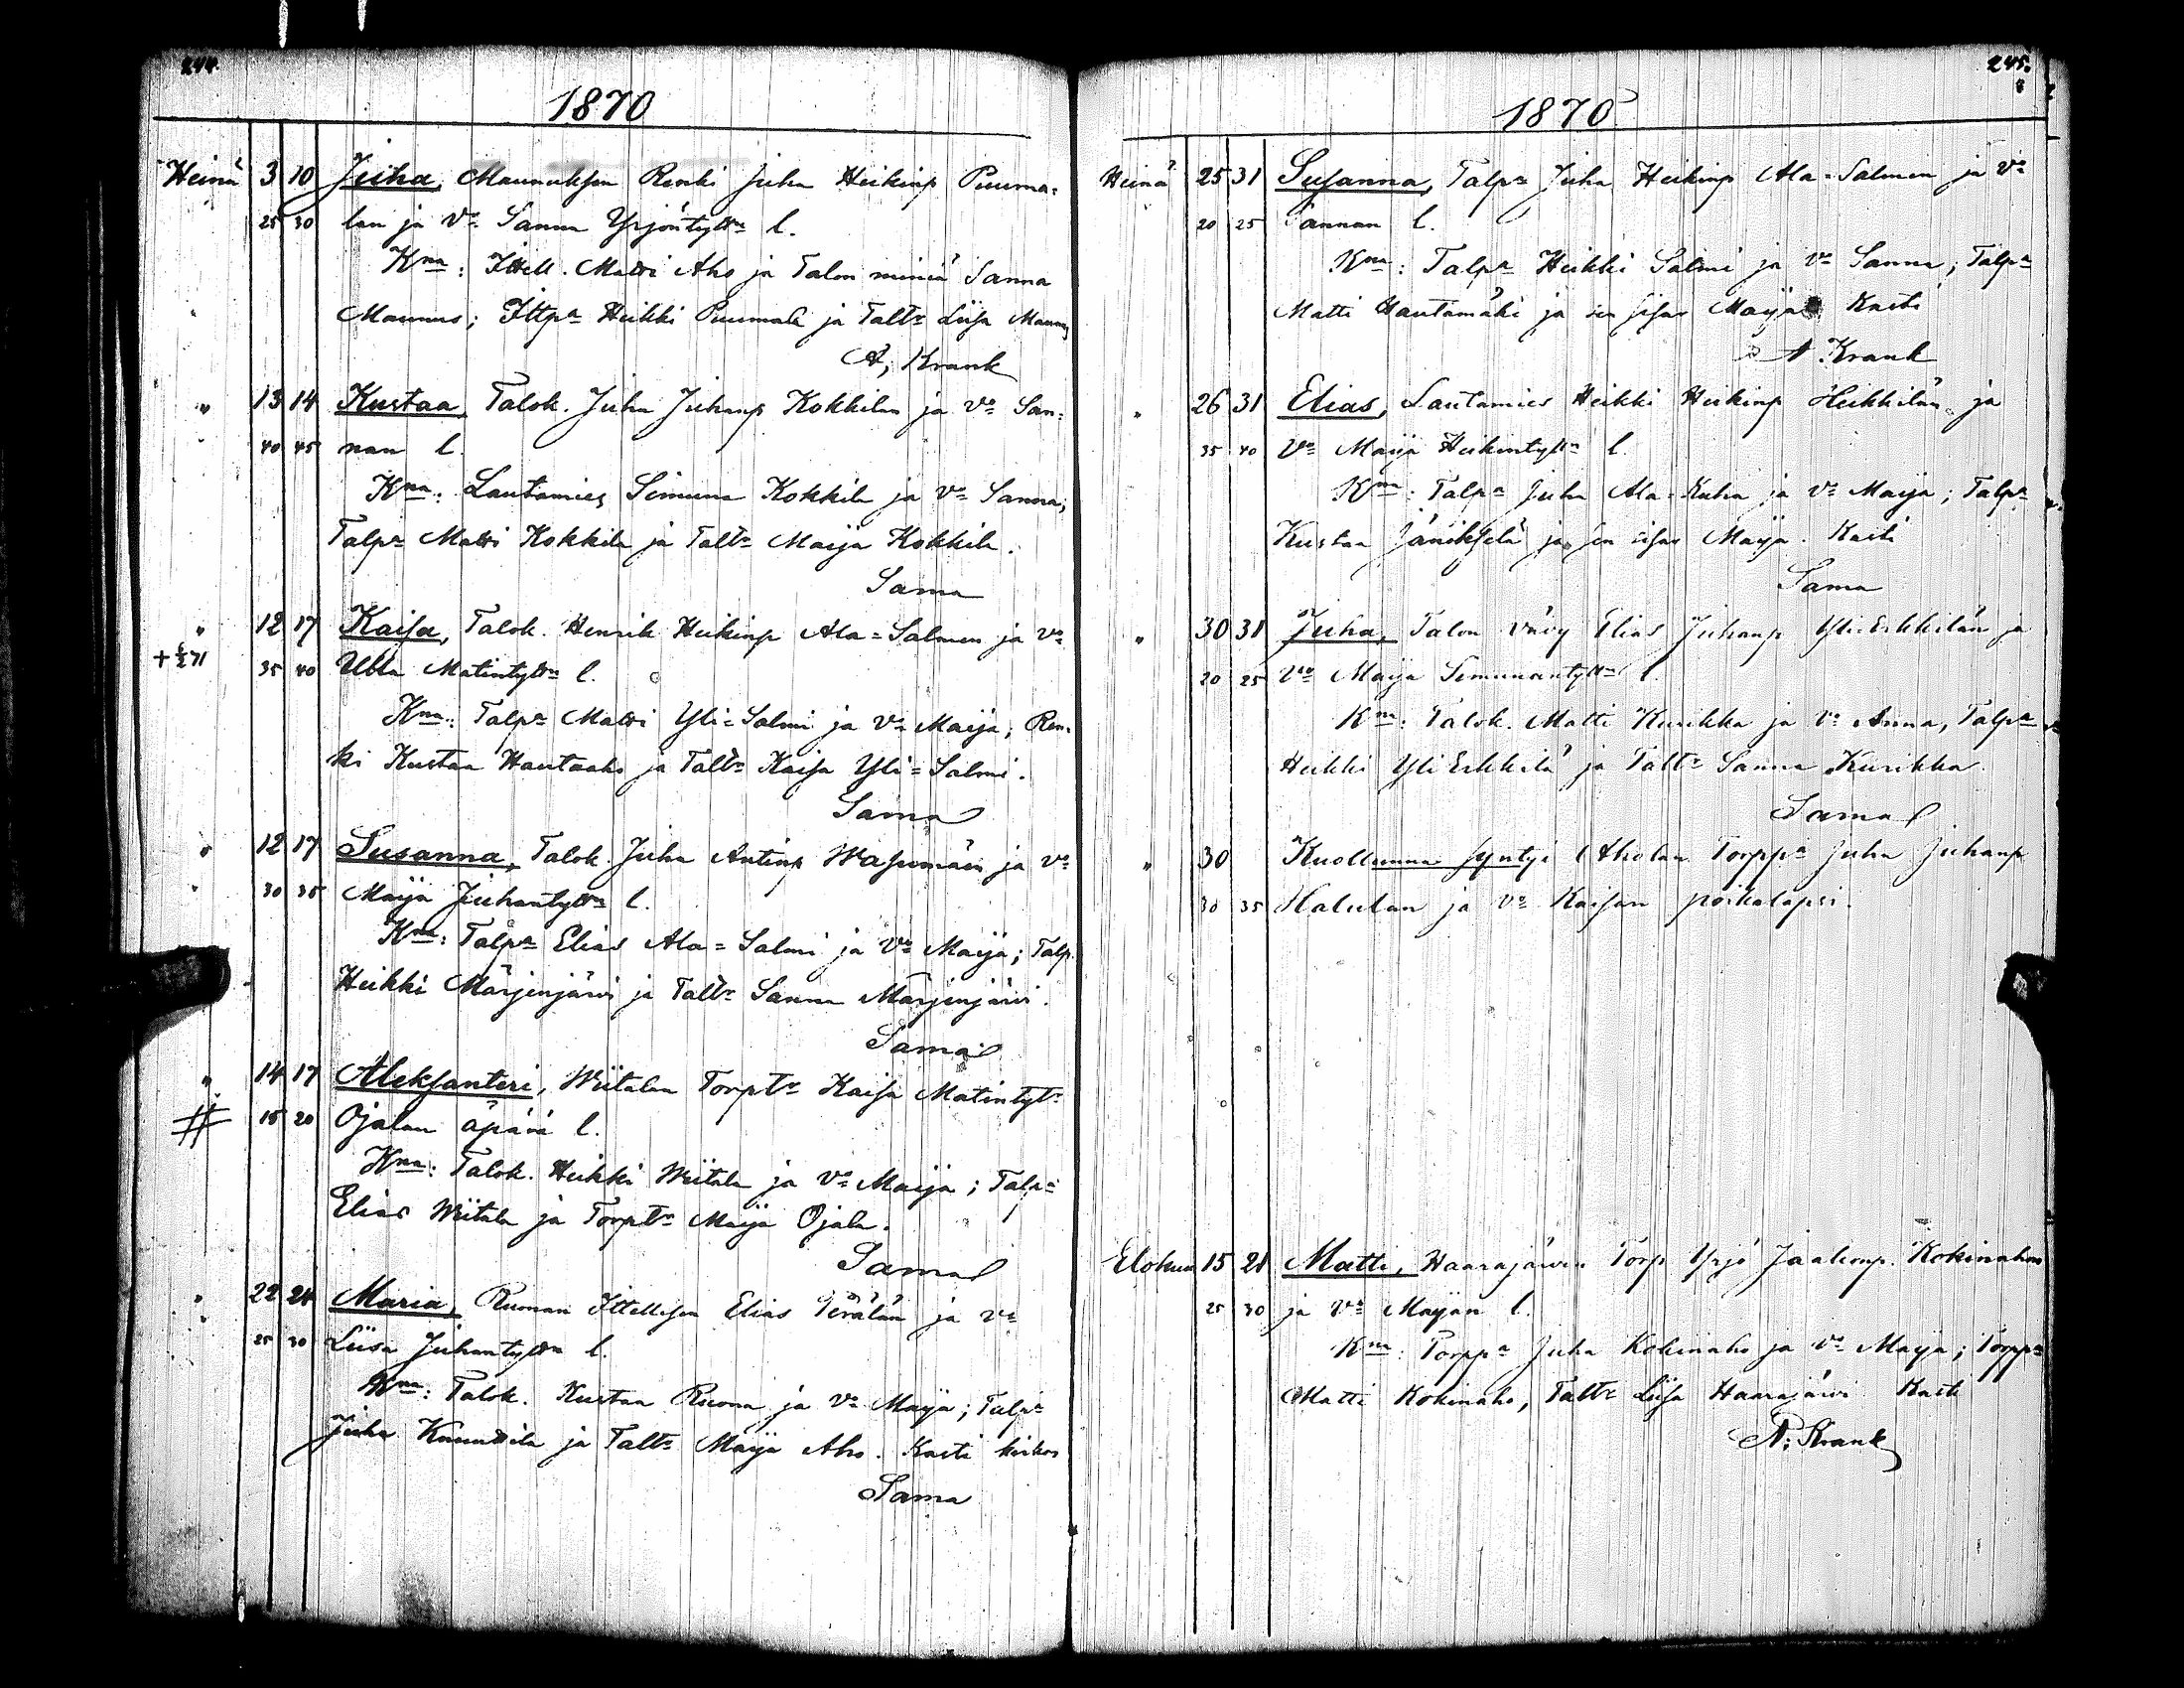 244.
1870
Heinä 3 10 Juha, Maunuksen Renki Juha Heikinp Puuma-
25 30 lan ja Vo Sanna Yrjöntyttn l.
Kna: Ittell. Matti Aho ja Talon miniä Sanna
Maunus; Ittpa Heikki Puumala ja Taltr Liisa Maunus
A. Krank
" 13 14 Kustaa, Talok. Juha Juhanp Kokkilan ja Vo San-
40 45 nan l.
Kna: Lautamies Simuna Kokkila ja Vo Sanna;
Talpa Matti Kokkila ja Taltr Maija Kokkila.
Sama
" 12 17 Kaisa, Talok. Henrik Heikinp Ala=Salmen ja Vo
+ 71 35 40 Ulla Matintyttn l.
Kna: Talpa Matti Yli=Salmi ja Vo Maija; Ren-
ki Kustaa Hautaaho ja Taltr Kaisa Yli=Salmi.
Sama
" 12 17 Susanna, Talok. Juha Antinp Wasumäen ja Vo
30 35 Maija Juhantyttn l.
Kna: Talpa Elias Ala=Salmi ja Vo Maija; Talp.
Heikki Märjenjärvi ja Taltr Sanna Märjenjärvi.
Sama
" 14 17 Aleksanteri, Wiitalan Torptr Kaisa Matintytr
# 15 20 Ojalan äpärä l.
Kna: Talok. Heikki Wiitala ja Vo Maija; Talpa
Elias Wiitala ja Torptr Maija Ojala.
Sama
" 22 24 Maria, Ruonan Ittellisen Elias Perälän ja Vo
25 30 Liisa Juhantyttn l.
Kna: Talok. Kustaa Ruona ja Vo Maija; Talpa
Juha Knuuttila ja Taltr Maija Aho. Kasti kirkos
Sama
245.
1870
Heinä 25 31 Susanna, Talpa Juha Heikinp Ala=Salmen ja Vo
20 25 Sannan l.
Kna: Talpa Heikki Salmi ja Vo Sanna; Talpa
Matti Hautamäki ja sen sisar Maija Kasti
A. Krank
" 26 31 Elias, Lautamies Heikki Heikinp Heikkilän ja
35 40 Vo Maija Heikintyttn l.
Kna: Talpa Juha Ala=Kuha ja Vo Maija; Talpa
Kustaa Jäniksetä ja sen sisar Maija. Kasti
Sama
" 30 31 Juha, Talon vävy Elias Juhanp Yli Erkkilän ja
20 25 Vo Maija Simunantyttn l.
Kna: Talok. Matti Kurikka ja Vo Anna, Talpa
Heikki Yli Erkkilä ja Taltr Sanna Kurikka.
Sama
" 30 Kuolluunna syntyi Aholan Torppa Juha Juhanp
30 35 Halulan ja Vo Kaisan poikalapsi.
Elokuu 15 21 Matti, Haarajärven Torp Yrjö Jaakonp. Kokinahon
25 30 ja Vo Maijan l.
Kna: Torppa Juha Kokinaho ja Vo Maija; Torppa
Matti Kokinaho, Taltr Liisa Haarajärvi Kasti
A. Krank